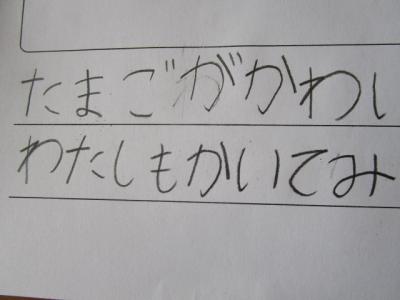 たまごがかわい
わたしもかいてみ